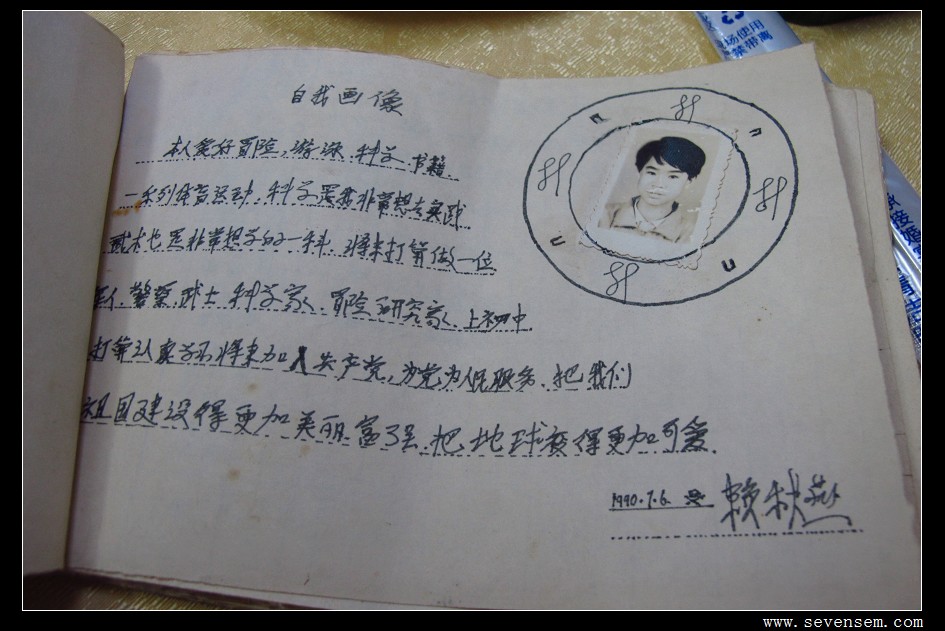 自我画像
本人爱好冒险,游泳.科学.书籍.
一系列体育运动,科学是我非常想去实践
武术也是非常想学的一科.将来打算做一位
军人.警察.武士.科学家、冒险研究家.上初中.
打算认真学习将来加入共产党,为党,为人民服务.把我们
祖国建设得更加美丽富强.把地球变得更加可爱.
1990.7.6.
赖秋燕
场使用
禁带离
www.sevensem.com